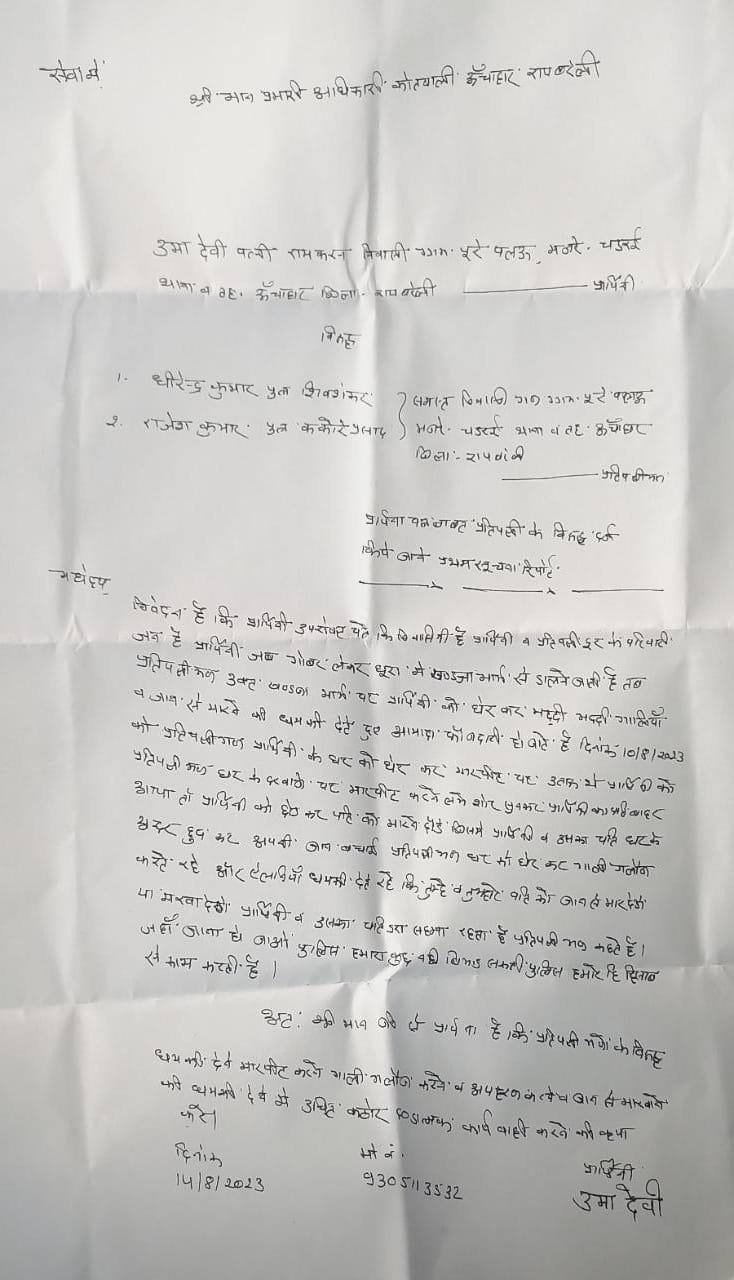 सेवा में
श्री मान प्रभारी अधिकारी कोतवाली ऊँचाहार रायबरेली
उमा देवी पत्नी रामकरन निवासी ग्राम पूरे मजरे
थाना व तह. ऊँचाहार जिला. रायबरेली ——— प्रार्थिनी
विरुद्ध
1. धीरेन्द्र कुमार पुत्र शिवशंकर
2. राजेश कुमार पुत्र
समस्त निवासी गन ग्राम पूरे
मजरे. थाना व तह ऊँचाहार
जिला:-
——— प्रतिपक्षीगण
प्रार्थना पत्र बाबत प्रतिपक्षी के विरुद्ध दर्ज
किये जाने प्रथम सूचना रिपोर्ट.
महोदय
निवेदन है कि प्रार्थिनी उपरोक्त पते कि निवासिनी है प्रार्थिनी व प्रतिपक्षी के
जन है प्रार्थिनी जब गोबर लेकर घूरा में खण्डजा मार्ग से डालने जाती है तब
प्रतिपक्षी गण उक्त खण्डजा मार्ग पर प्रार्थिनी को घेर कर भद्दी भद्दी गालियाँ
व जान से मारने की धमकी देते हुए आमादा फौजदारी हो जाते है दिनांक 10/8/2023
को प्रतिपक्षीगण प्रार्थिनी के घर को घेर कर मारपीट पर प्रार्थिनी को
प्रतिपक्षी गण घर के दरवाजे पर मारपीट करने लगे शोर सुनकर प्रार्थिनी का पति बाहर
आया तो प्रार्थिनी को छोड़ कर पति को मारने दौड़े जिससे प्रार्थिनी व उसका पति घर के
अन्दर कर अपनी जान बचाई प्रतिपक्षी गण घर को घेर कर गाली गलौज
करते रहे और धमकी देते रहे कि तुम्हे व तुम्हारे पति को जान से मार देगे
या मरवा देगे प्रार्थिनी व उसका पति रहता है प्रतिपक्षी गण कहते है।
जहाँ जाना हो जाओ पुलिस हमारा कुछ नही बिगाड़ सकती पुलिस हमारे हि हिसाब
से काम करती है।
अतः श्री मान जी से प्रार्थना है कि प्रतिपक्षी गणों के विरुद्ध
धमकी देने मारपीट करने गाली गलौज करने व अपहरण करने व जान से मारने
की धमकी देने में उचित कठोर दण्डात्मक कार्य वाही करने की कृपा
करें।
दिनांक
14/8/2023
मो नं.
9305113532
प्रार्थिनी
उमा देवी